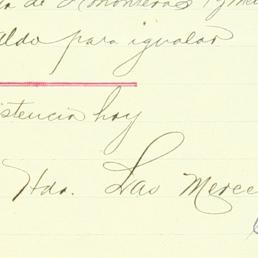 de
aldo para igualar
istencia hoy
Hda. Las Merce